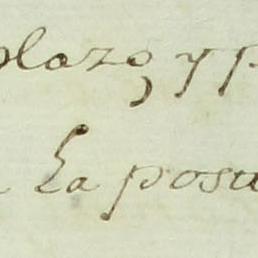 plazo, y p
La posu